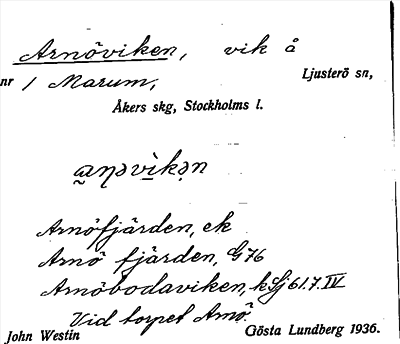 Arnöviken, vik å
nr 1 Marum, Ljusterö sn,
Åkers skg, Stockholms l.
a̮ŋəvìkə̣n
Arnöfjärden, ek
Arnö fjärden, G 76
Arnöbodaviken, k Sj 61.7.IV
Vid torpet Arnö.
John Westin Gösta Lundberg 1936.